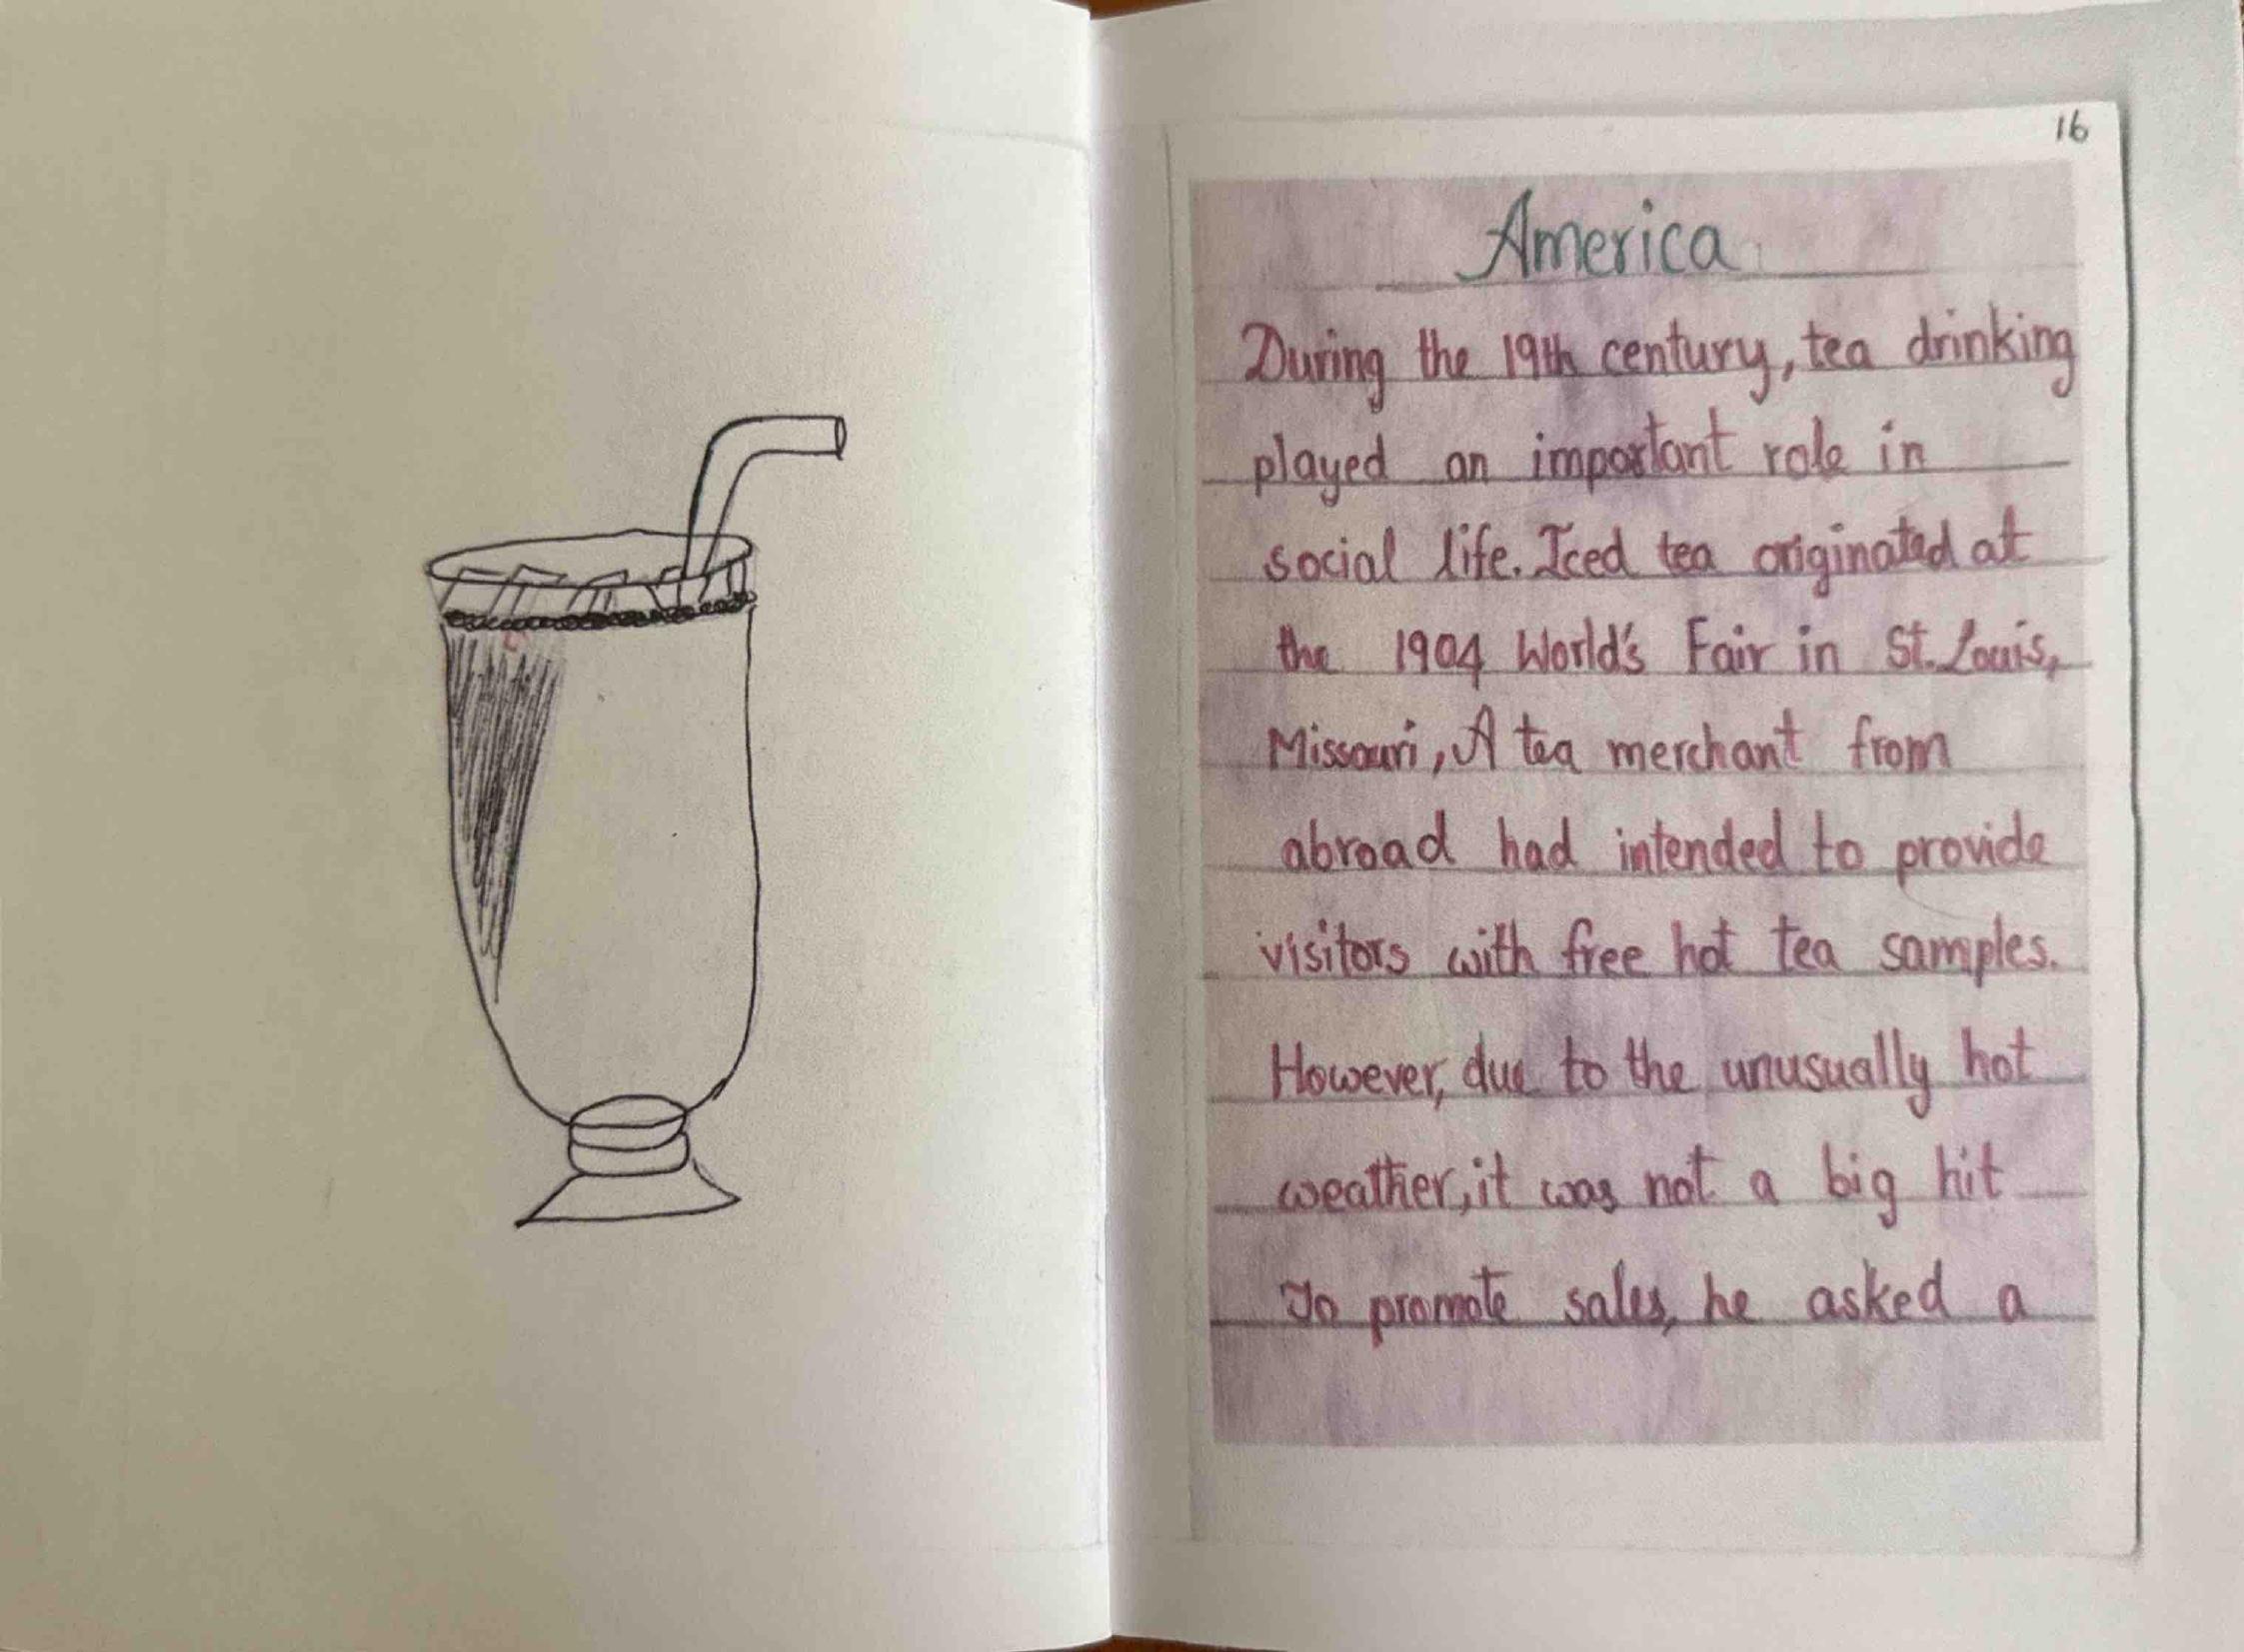 16
America
During the 19th century, tea drinking
played an important role in
social life. Iced tea originated at
the 1904 World's Fair in St. Louis,
Missouri, A tea merchant from
abroad had intended to provide
visitors with free hot tea samples.
However, due to the unusually hot
weather, it was not a big hit
To promote sales, he asked a